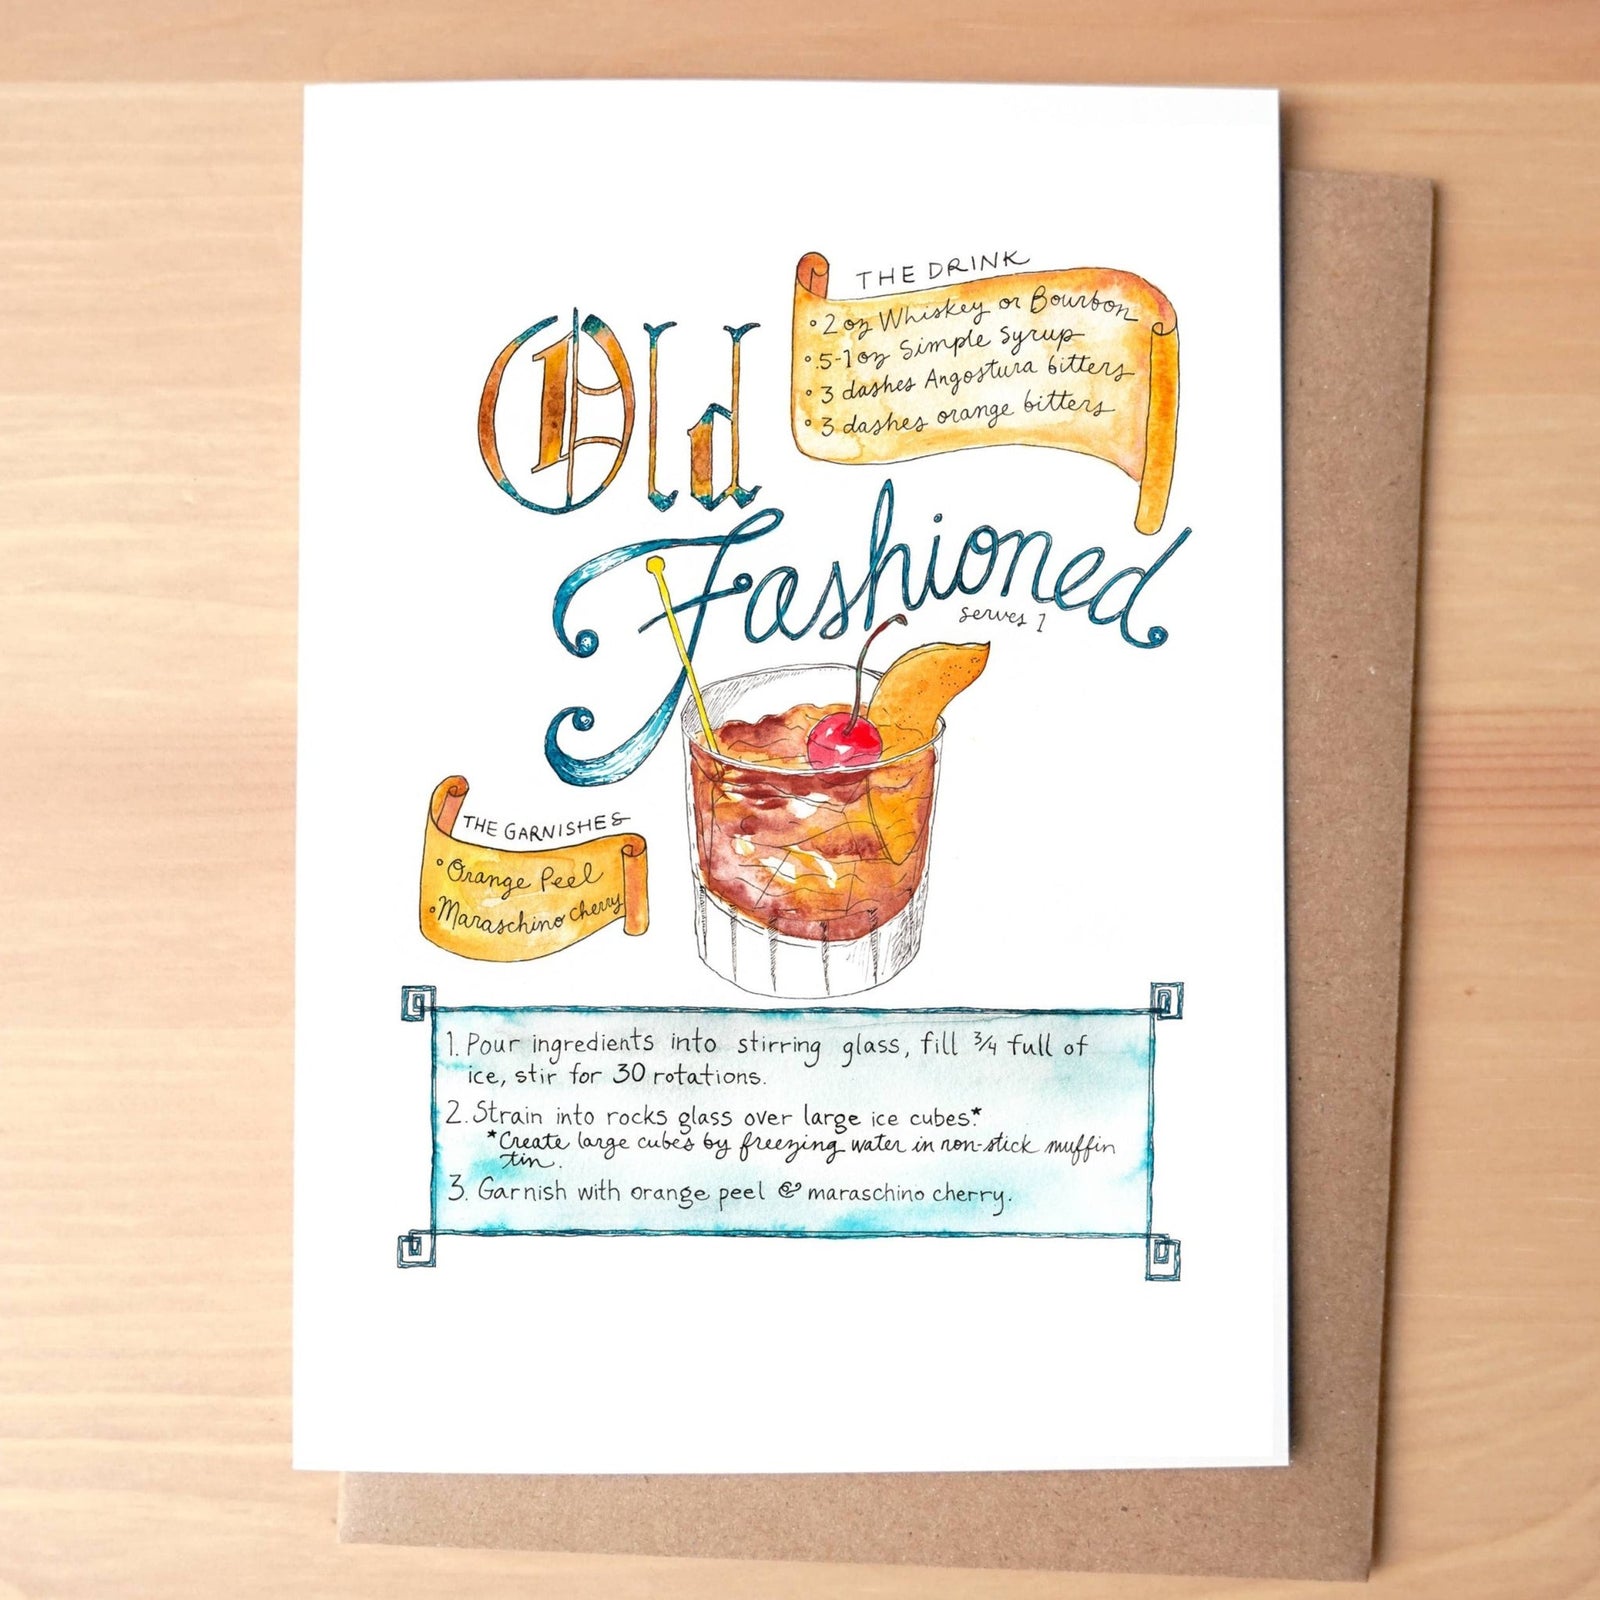 Old
Fashioned
serves 1
THE DRINK
• 2 oz Whiskey or Bourbon
• .5-1 oz Simple Syrup
• 3 dashes Angostura bitters
• 3 dashes orange bitters
THE GARNISHES
• Orange Peel
• Maraschino cherry
1. Pour ingredients into stirring glass, fill 3/4 full of
ice, stir for 30 rotations.
2. Strain into rocks glass over large ice cubes.*
*Create large cubes by freezing water in non-stick muffin
tin.
3. Garnish with orange peel & maraschino cherry.